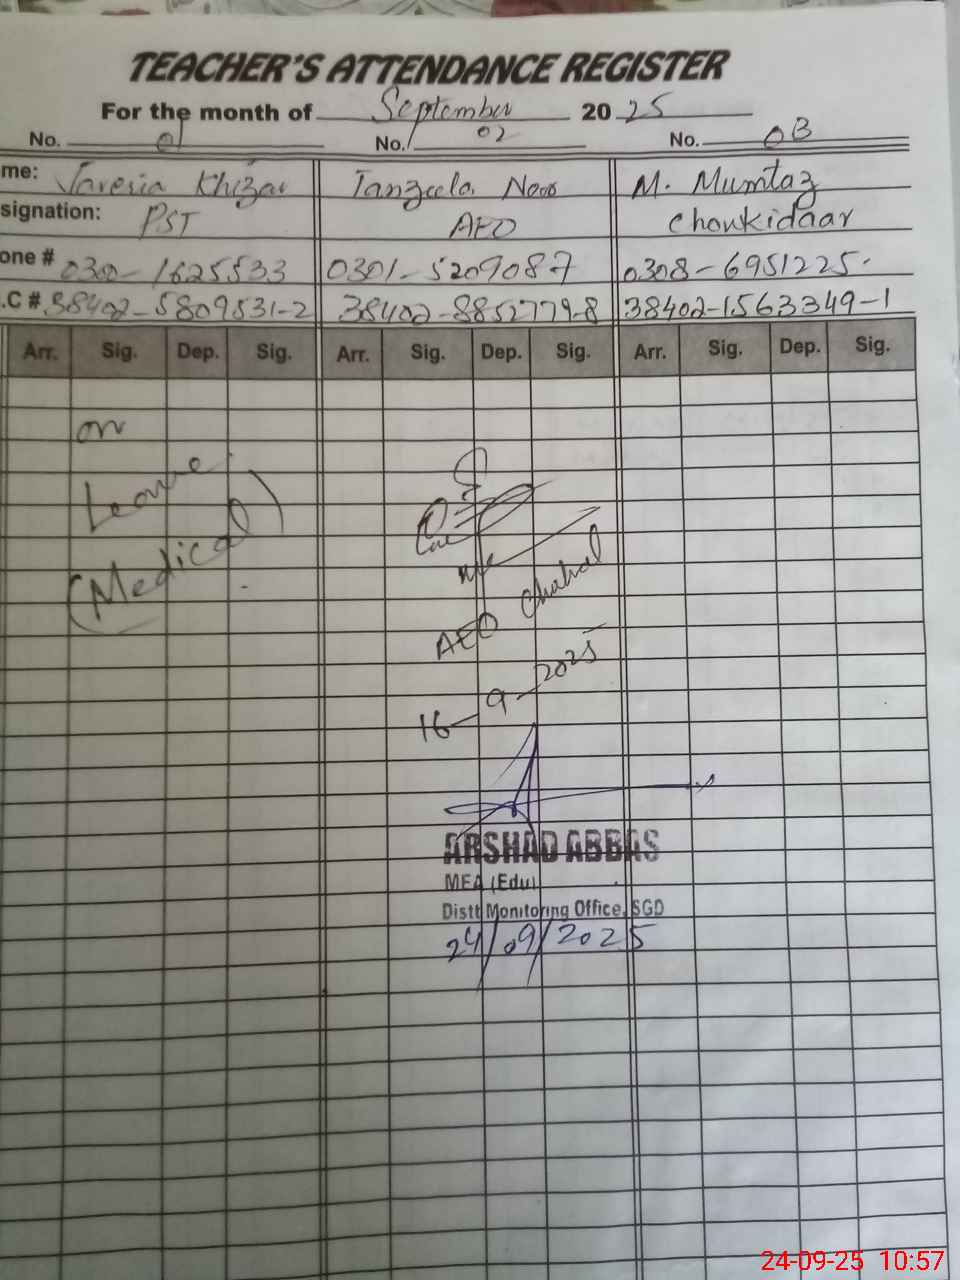 TEACHER'S ATTENDANCE REGISTER
For the month of September 2025
No. 01 No. 02 No. 03
me: Javeria Khizar Tanzeela Noor M. Mumtaz
signation: PST AEO Choukidaar
one # 0300-1625533 0301-5209087 0308-6951225
.C # 38402-5809531-2 38402-8852779-8 38402-1563349-1
Arr. Sig. Dep. Sig. Arr. Sig. Dep. Sig. Arr. Sig. Dep. Sig.
on
Leave
(Medical)
AEO Chahal
16-9-2025
ARSHAD ABBAS
MEA (Edu)
Distt Monitoring Office, SGD
24/09/2025
24-09-25 10:57